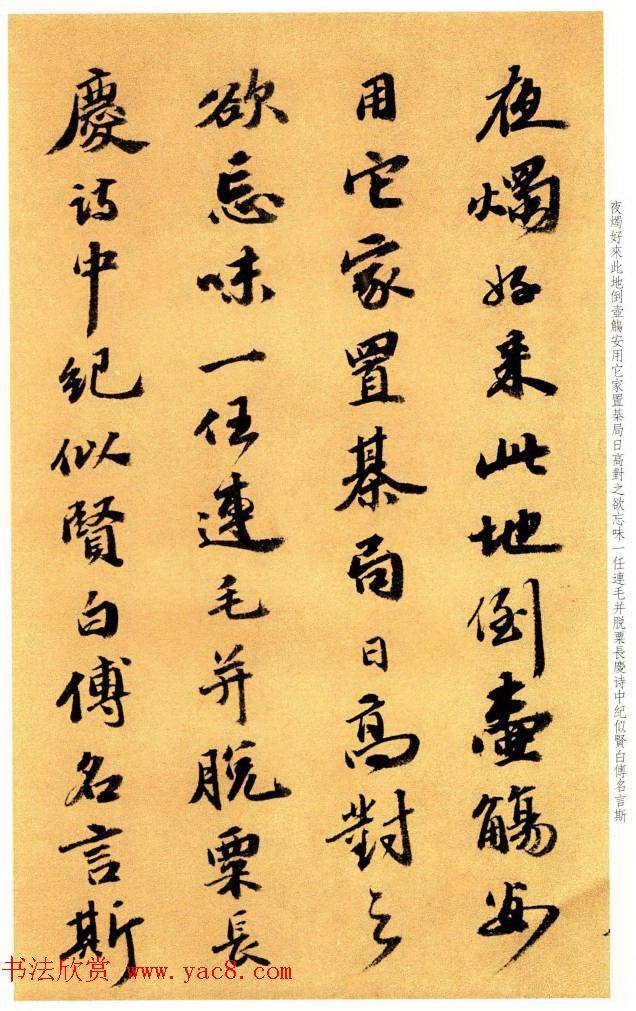 夜燭好來此地倒壺觴安
用它家置棊局日高對之
欲忘味一任連毛并脱粟長
慶诗中紀似賢白傅名言斯
夜燭好來此地倒壺觴安用它家置棊局日高對之欲忘味一任連毛并脱粟長慶诗中紀似賢白傅名言斯
书法欣赏 www.yac8.com